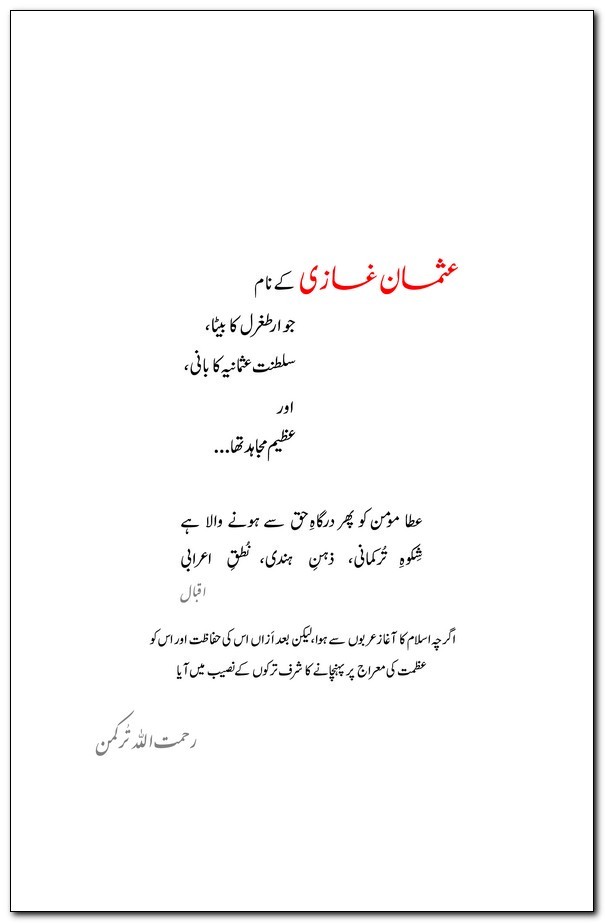 عثمان غازی کے نام
جو ارطغرل کا بیٹا،
سلطنت عثمانیہ کا بانی،
اور
عظیم مجاہد تھا...
عطا مومن کو پھر درگاہِ حق سے ہونے والا ہے
شِکوہِ تُرکمانی، ذہنِ ہندی، نُطقِ اعرابی
اقبال
اگرچہ اسلام کا آغاز عربوں سے ہوا، لیکن بعد اَزاں اس کی حفاظت اور اس کو
عظمت کی معراج پر پہنچانے کا شرف ترکوں کے نصیب میں آیا
رحمت اللہ تُرکمن